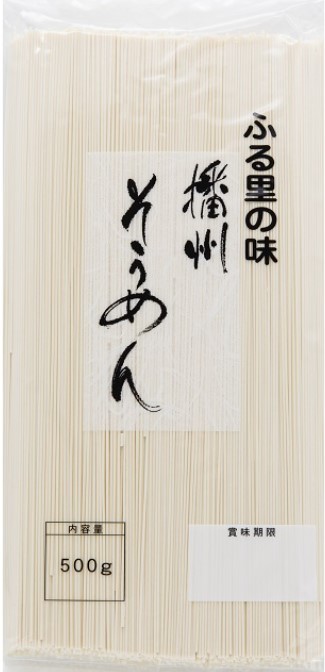 ふる里の味
播州
そうめん
内容量
500g
賞味期限